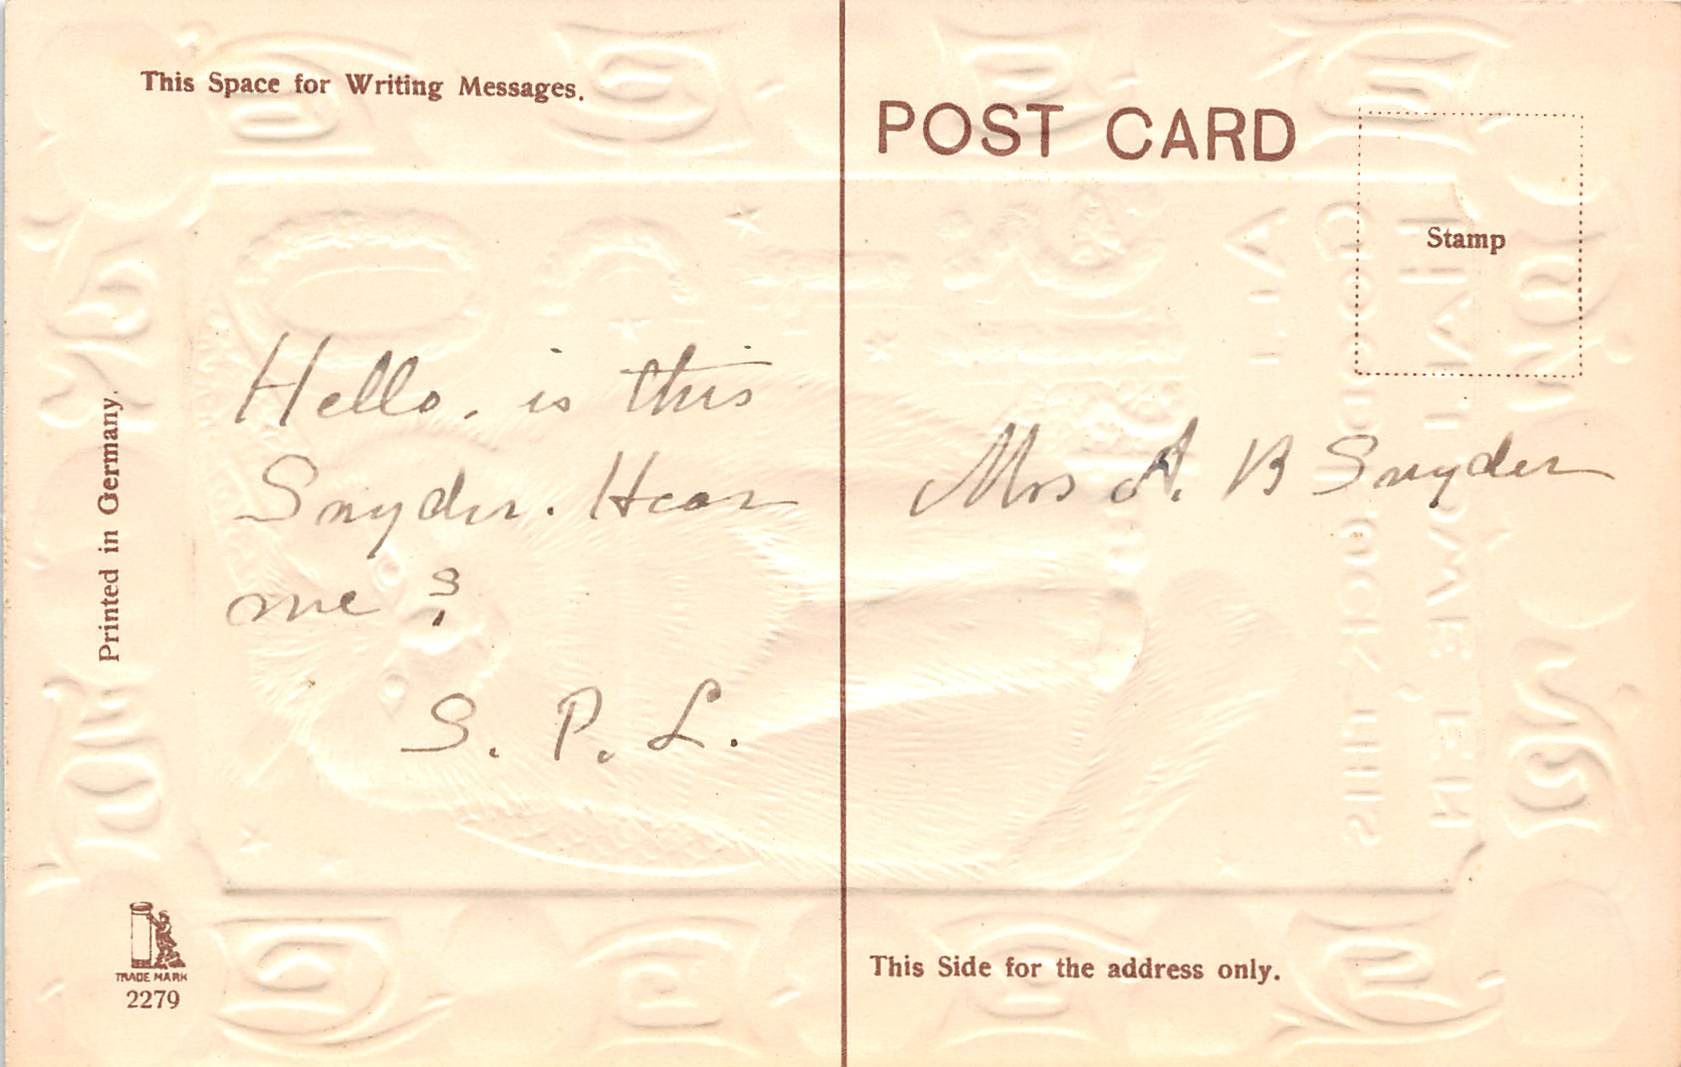 This Space for Writing Messages.
POST CARD
Stamp
Hello, is this
Snyder. Hear
me?
S. P. L.
Mrs A. B Snyder
Printed in Germany.
TRADE MARK
2279
This Side for the address only.